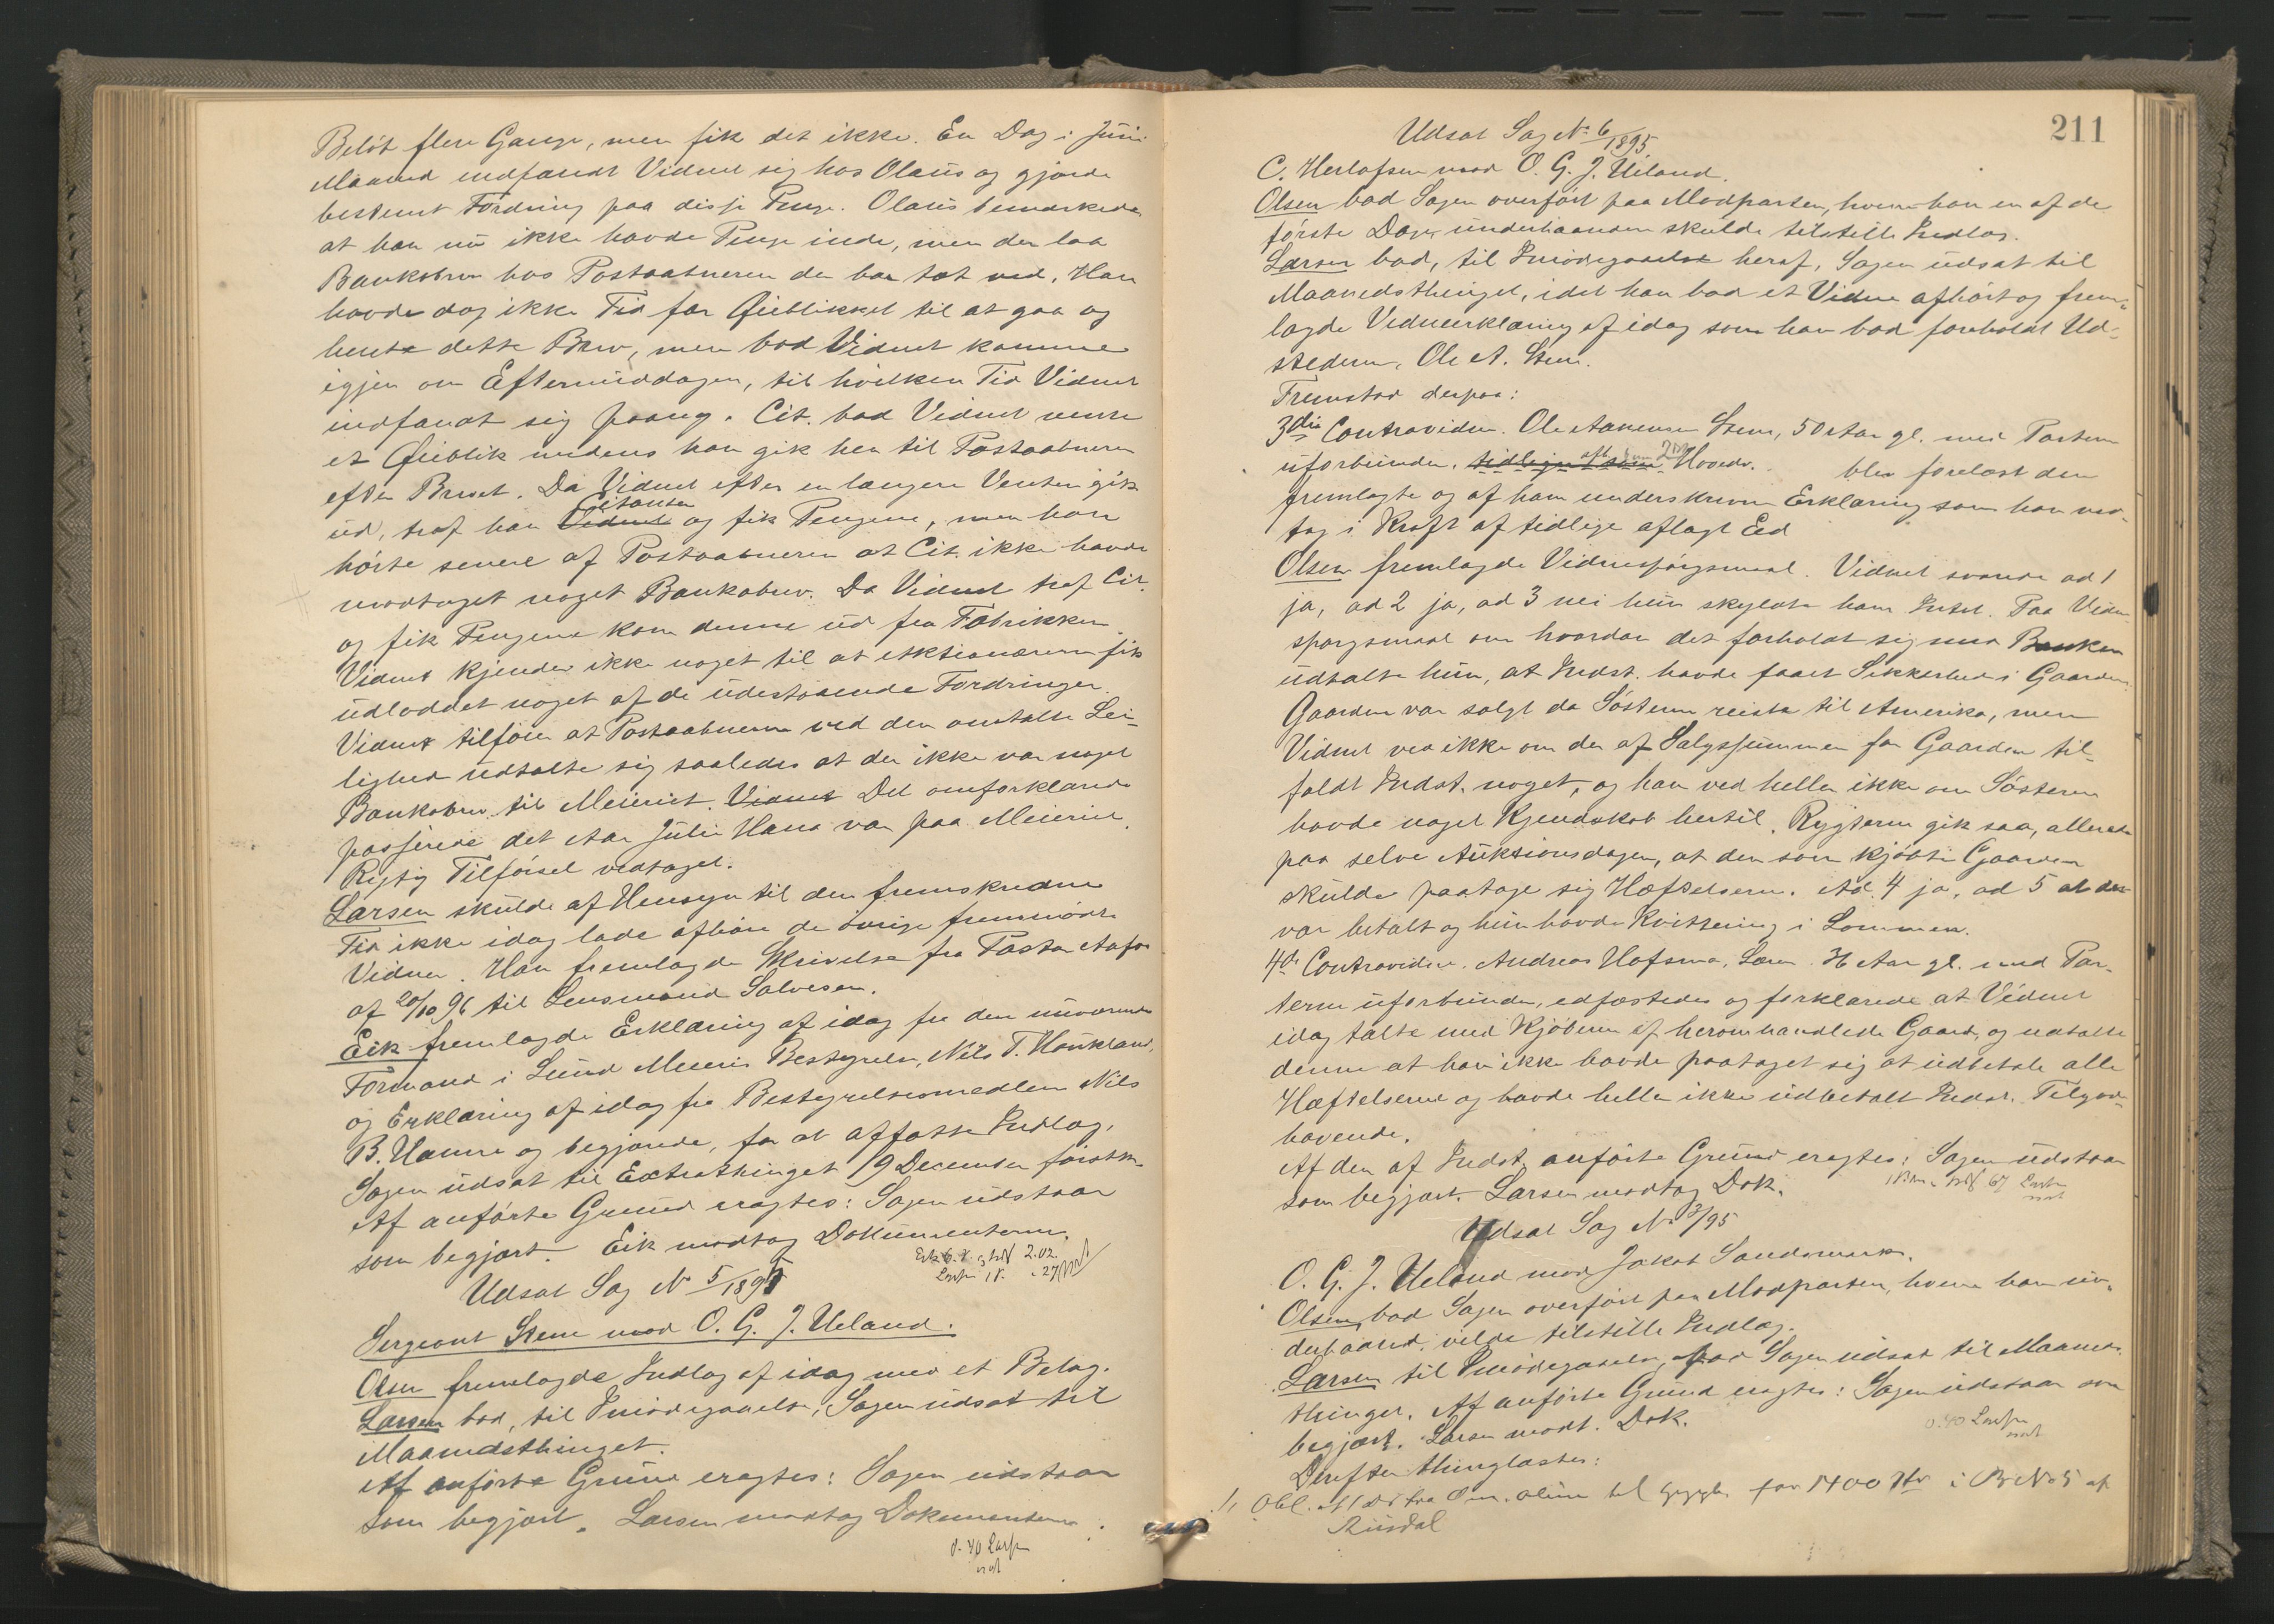 Beløb flere Gange, men fik det ikke. En Dag i Juni
Maaned indfandt Vidnet sig hos Olaus og gjorde
bestemt Fordring paa disse Penge. Olaus bemærkede
at han nu ikke havde Penge inde, men der laa
Bankobrev hos Postaabneren der han tæt ved. Han
havde dog ikke Tid for Øieblikket til at gaa og
hente dette Brev, men bad Vidnet komme
igjen om Eftermiddagen, til hvilken Tid Vidnet
indfandt sig paany. Cit. bad Vidnet vente
et Øieblik medens han gik hen til Postaabneren
efter Brevet. Da Vidnet efter en længere Venten gik
ud, traf han Vidnet Citanten og fik Pengene, men han
hørte senere af Postaabneren at Cit. ikke havde
modtaget noget Bankobrev. Da Vidnet traf Cit.
og fik Pengene kom denne ud fra Fabrikken.
Vidnet kjender ikke noget til at Aktionærerne fik
udloddet noget af de udestaaende Fordringer.
Vidnet tilføier at Postaabneren ved den omtalte Lei-
lighed udtalte sig saaledes at der ikke var noget
Bankobrev til Meieriet. Vidnet Det omforklarede
passerede det Aar Julie Hana var paa Meieriet.
Rigtig Tilførsel vedtaget.
Larsen skulde af Hensyn til den fremskredne
Tid ikke idag lade afhøre de øvrige fremmødte
Vidner. Han fremlagde Skrivelse fra Pastor
af 20/10 96 til Lensmand Salvesen.
Eik fremlagde Erklæring af idag fra den nuværende
Formand i Lund Meieris Bestyrelse, Nils T. Haukland,
og Erklæring af idag fra Bestyrelsesmedlem Nils
B. Hamre og begjærede, for at affatte Indlæg,
Sagen udsat til Extrathinget 19 December førstk.
Af anførte Grund eragtes: Sagen udstaar
som begjært. Eik modtog Dokumenterne.
Udsat Sag No 5/1895
Sergeant Steen mod O. G. J. Ueland.
Olsen fremlagde Indlæg af idag med et Bilag.
Larsen bad, til Imødegaaelse, Sagen udsat til
Maanedsthinget.
Af anførte Grund eragtes: Sagen udstaar
som begjært. Larsen modtog Dokumenterne.
0.40 Larsen
211
Udsat Sag No 6/1895
C. Herlofsen mod O. G. J. Ueland.
Olsen bad Sagen overført paa Modparten, hvem han en af de
første Dage underhaanden skulde tilstille Indlæg.
Larsen bad, til Imødegaaelse heraf, Sagen udsat til
Maanedsthinget, idet han bad et Vidne afhørt og frem-
lagde Vidneerklæring af idag som han bad foreholdt Ud-
stederen, Ole A. Steen.
Fremstod derpaa:
3die Contravidne. Ole Aanensen Steen, 50 Aar gl. med Parterne
uforbunden, tidligere Hovedv. blev forelæst den
fremlagte og af ham underskrevne Erklæring som han ved-
tog i Kraft af tidlige aflagt Eed
Olsen fremlagde Vidnespørgsmaal. Vidnet svarede ad 1
ja, ad 2 ja, ad 3 nei hun skyldte ham Intet. Paa Vidne-
spørgsmaal om hvordan det forholdt sig med Banken
udtalte hun, at Indst. havde faaet Sikkerhed i Gaarden.
Gaarden var solgt da Søsteren reiste til Amerika, men
Vidnet ved ikke om der af Salgssummen for Gaarden til-
faldt Indst. noget, og han ved heller ikke om Søsteren
havde noget Kjendskab hertil. Rygterne gik saa, allerede
paa selve Auktionsdagen, at den som kjøbte Gaarden
skulde paatage sig Hæftelserne. Ad 4 ja, ad 5 at det
var betalt og hun havde Kvittering i Lommen.
4de Contravidne. Andreas Hofsmo, Steen 36 Aar gl. med Par-
terne uforbunden, edfæstedes og forklarede at Vidnet
idag talte med Kjøberen af heromhandlede Gaard, og udtalte
denne at han ikke havde paataget sig at udbetale alle
Hæftelserne og havde heller ikke udbetalt Indst. Tilgode-
havende.
Af den af Indst. anførte Grund eragtes: Sagen udstaar
som begjært. Larsen modtog Dok.
Udsat Sag No 3/95
O. G. J. Ueland mod Jakob Sandsmark.
Olsen bad Sagen overført paa Modparten, hvem han un-
derhaand. vilde tilstille Indlæg.
Larsen til Imødegaaelse, bad Sagen udsat til Maaneds-
thinget. Af anførte Grund eragtes: Sagen udstaar som
begjært. Larsen modt. Dok.
0.40 Larsen
Derefter thinglæstes:
1, Obl. for 1400 Kr i Br No 5 af
Rusdal